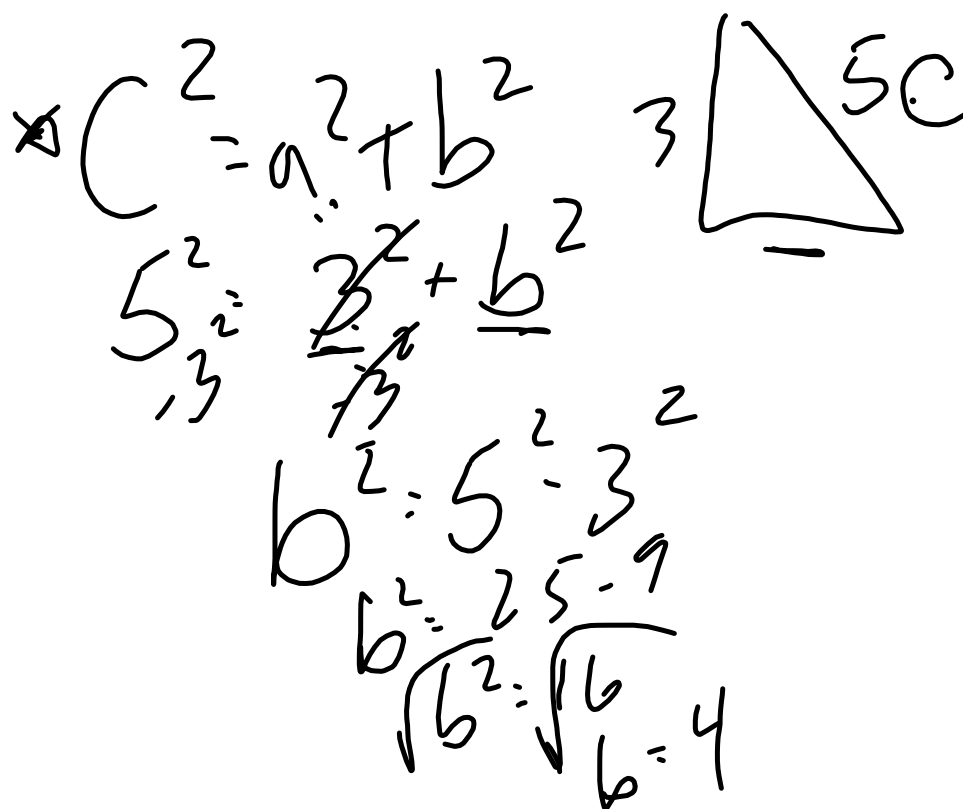 c² = a² + b²
3 5 c
5² = 3² + b²
-3² -3²
b² = 5² - 3²
b² = 25 - 9
√b² = √16
b = 4